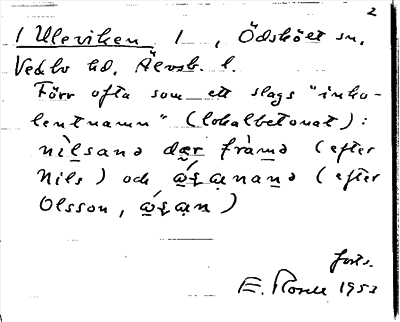 2
1 Uleviken 1, Ödskölt sn,
Vedbo hd, Älvsb. l.
Förr ofta som ett slags "inko-
lentnamn" (lokalbetonat):
nilsanə dær framə (efter
Nils) och (efter
Olsson, )
forts.
E. 1953